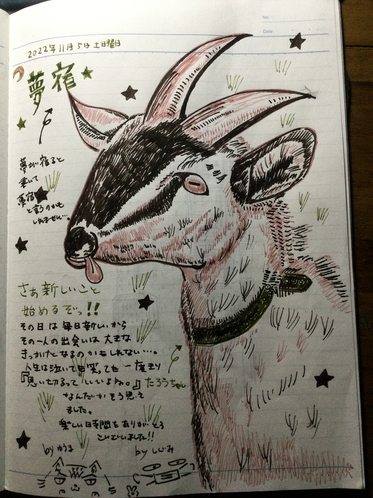 2022年11月5日土曜日
No.
Date
夢宿
夢が宿ると
書いて
夢宿
と言うかも
しれません…
さあ新しいこと
始めるぞっ!!
その日は毎日新しいから
その一人の出会いは大きな
きっかけとなるのかもしれない…。
人生は泣いても笑っても一度きり
『思いっきるって』いいよね。』たろうちゃん
なんだかそう思って
ました。
楽しい時間をありがとう
ございました!!
byゆうる
byしひみ